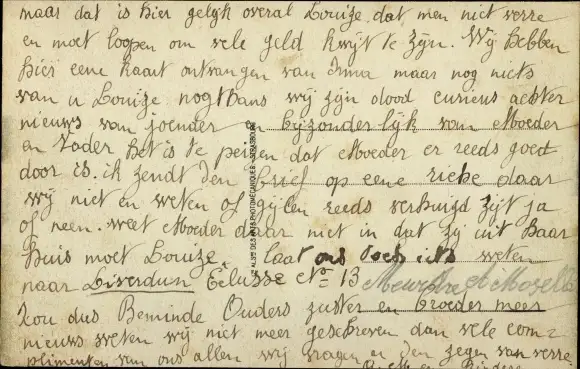 maar dat is hier gelijk overal Louize dat men niet verre
en moet loopen om vele geld kwijt te zijn. Wij hebben
hier eene kaart ontvangen van Irma maar nog niets
van u Louize nogthans wij zijn dood curieus achter
nieuws van joender en bijzonderlijk van Moeder
en Vader het is te peizen dat Moeder er reeds goed
door is. ik zendt den brief op eene rieke daar
wij niet en weten of gijlen reeds verhuizd zijt ja
of neen. weet Moeder daar niet in dat zij uit haar
huis moet Louize. laat ons toch iets weten
naar Liverdun Ecluse No 13 Meurthe et Moselle
Nou dus Beminde Ouders zuster en broeder meer
nieuws weten wij niet meer geschreven dan vele com=
plimenten van ons allen wij vragen er den zegen van verre